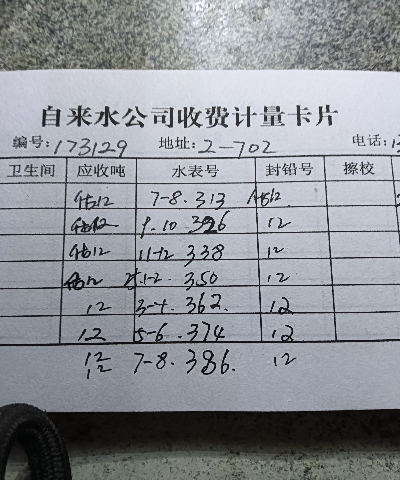 自来水公司收费计量卡片
编号: 173129 地址: 2-702 电话: 13
卫生间 应收吨 水表号 封铅号 擦校
12 7-8. 313 12
9.10. 326 12
12 11-12 338 12
12 1-2. 350 12
12 3-4. 362. 12
12 5-6. 374 12
12 7-8. 386. 12
12